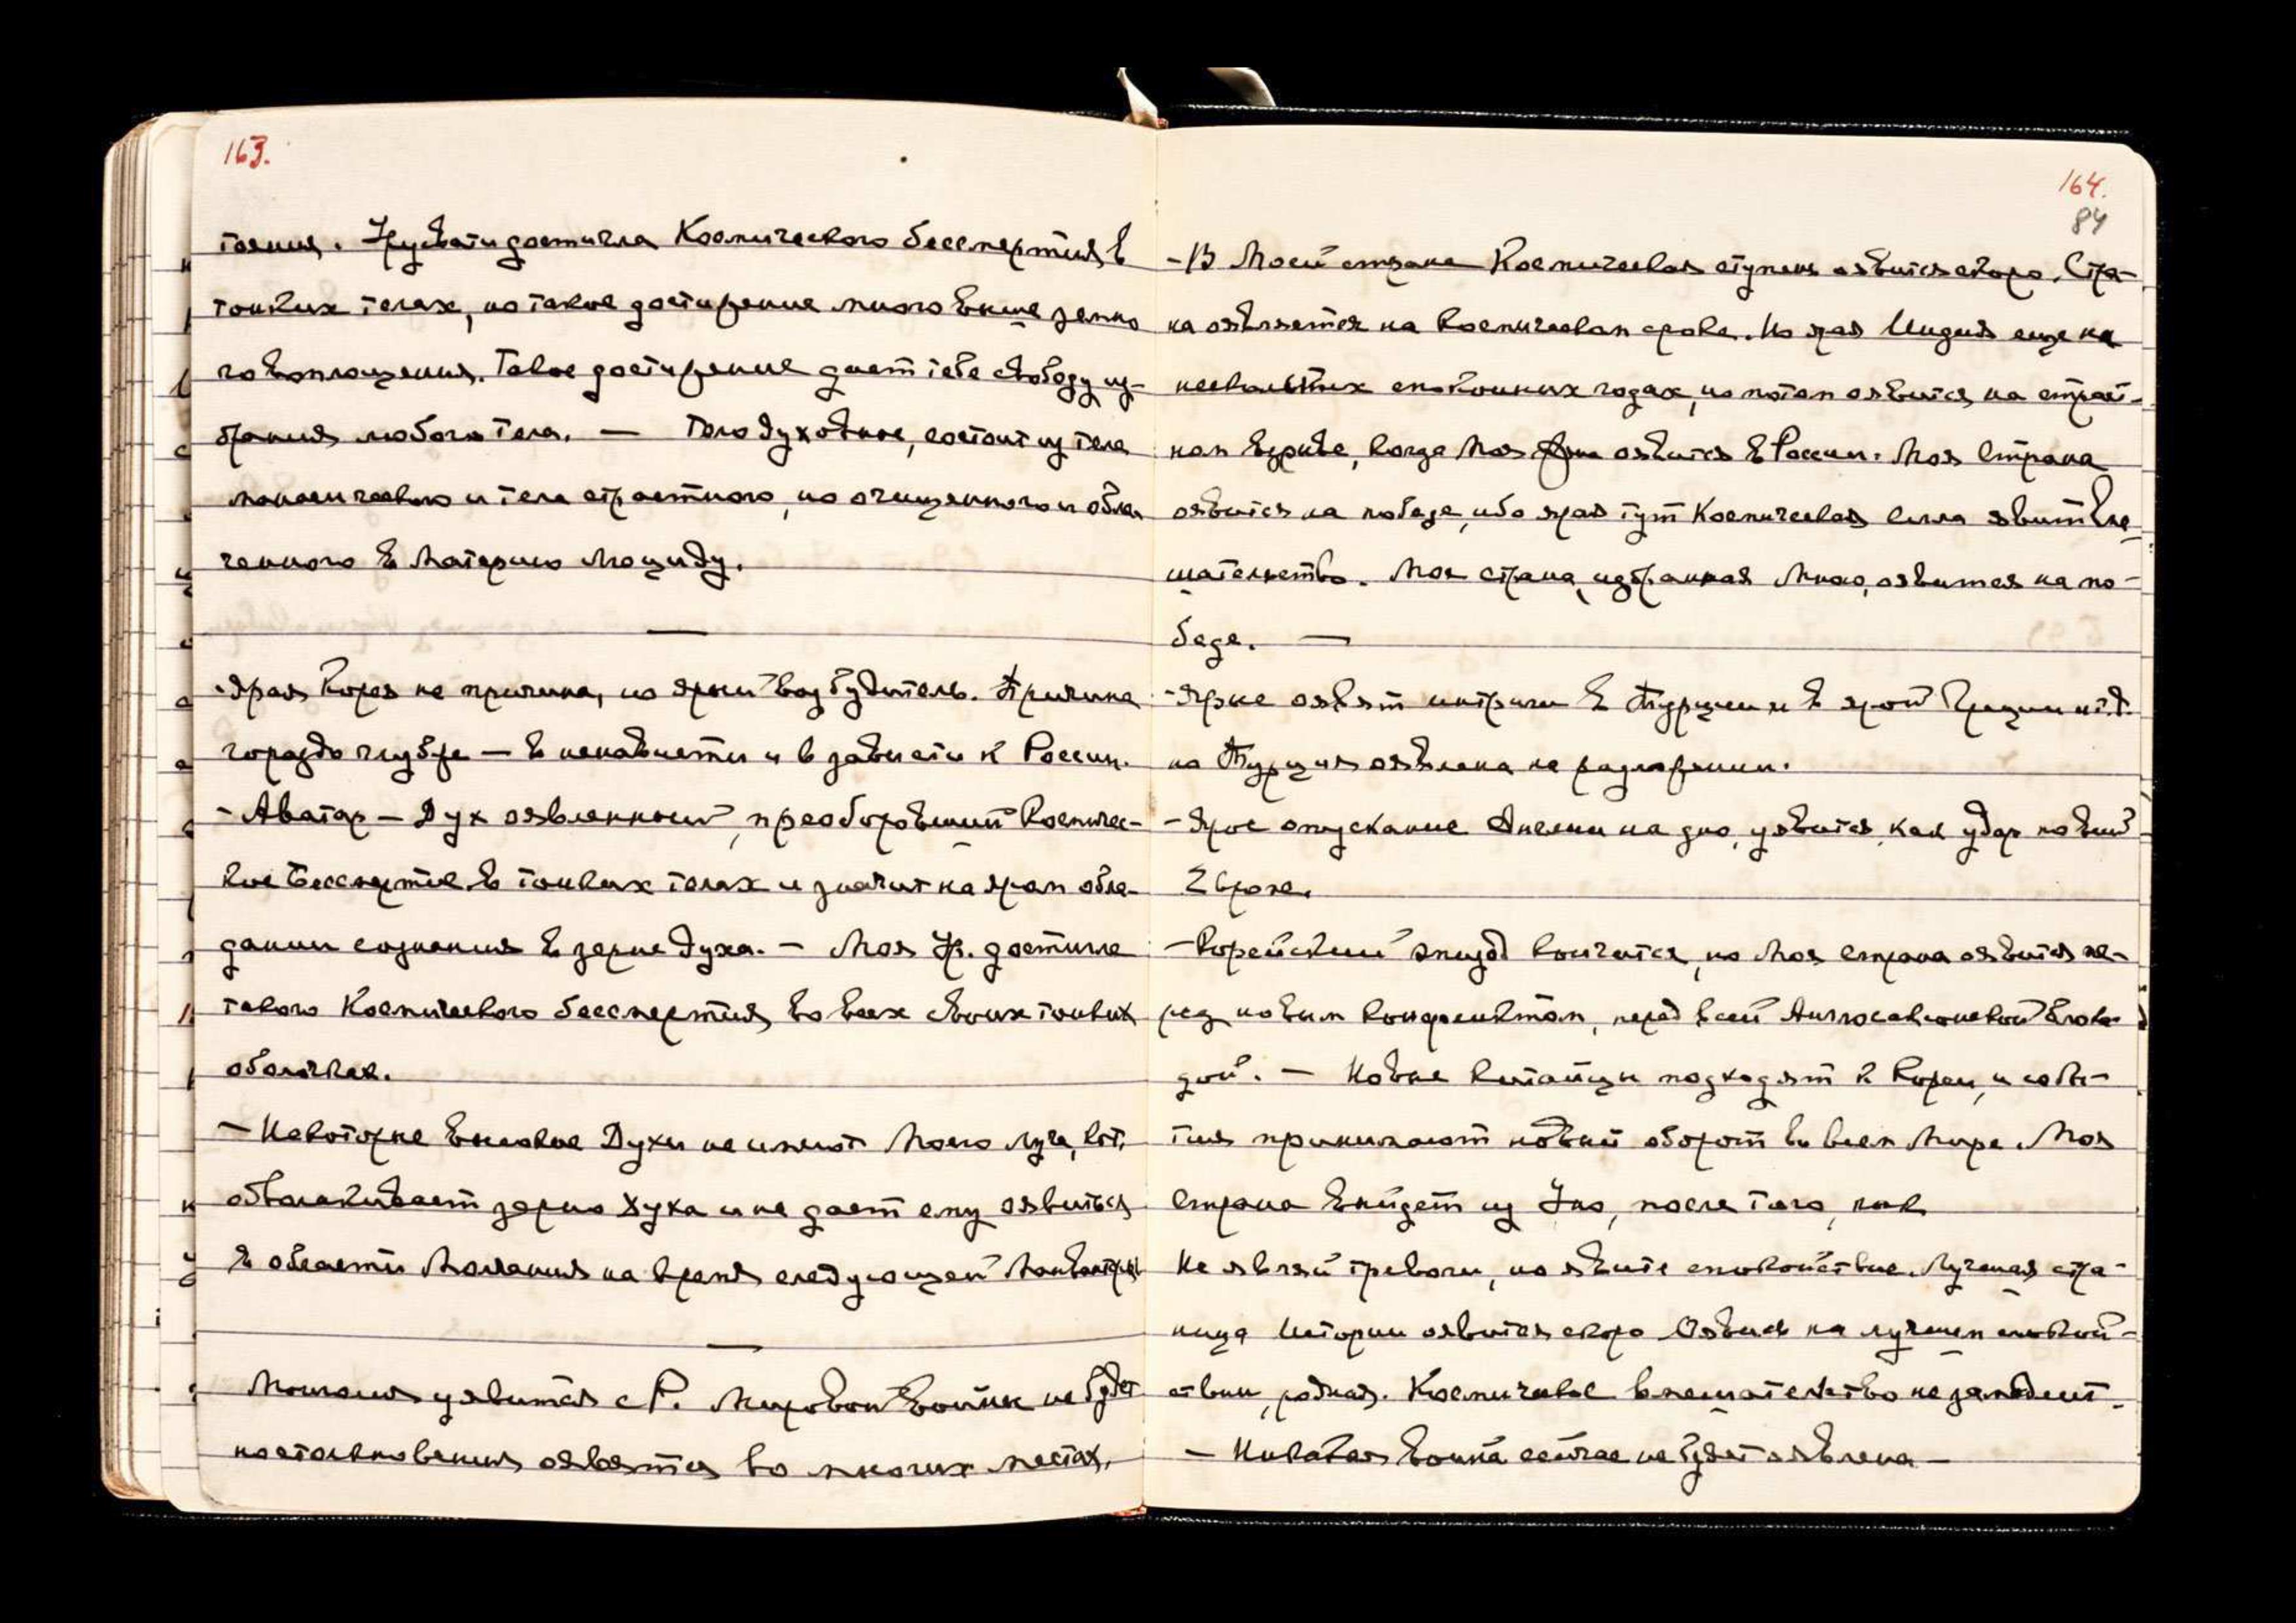 163.
тояния. Урусвати достигла Космического бессмертия в
тонких телах, но такое достижение много выше земно
го воплощения. Такое достижение дает тебе свободу из-
брания любого тела. — Тело духовное, состоит из тела
манасического и тела страстного, но очищенного и обле-
ченного в Материю Люциду.
—
- Ярая Корея не причина, но ярый возбудитель. Причина
гораздо глубже — в ненависти и в зависти к России.
- Аватар — Дух оявленный, преоборовший Космичес-
кое Бессмертие в тонких телах и значит на яром обла-
дании сознания в зерне духа. — Моя Ур. достигла
такого Космического бессмертия во всех своих тонких
оболочках.
— Некоторые высокие Духи не имеют Моего луча, кот.
обволакивает зерно духа и не дает ему оявиться
в области Молчания на время следующей Манвантары
—
уявится с Р. Мировой войны не будет
но столкновения оявятся во многих местах.
164.
84
- В Моей стране Космическая ступень оявится скоро. Стра-
на оявляется на космическом сроке. Но ярая Индия еще на
нескольких спокойных годах, но потом оявится на страст-
ном взрыве, когда Моя оявится в России. Моя Страна
оявится на победе, ибо ярая тут Космическая сила явит вме
шательство. Моя страна, избранная Мною, оявится на по-
беде. —
- Ярые оявят интриги в Турции и в ярой Греции и т.д.
но Турция оявлена на разложении.
- Ярое опускание Англии на дно, уявится, как удар по всей
Европе.
- Корейский эпизод кончится, но Моя страна оявится пе-
ред новым конфликтом, перед всей Англосаксонской блока
дой. — Новые китайцы подходят к Корее, и собы-
тия принимают новый оборот во всем Мире. Моя
страна выйдет из Уно, после того, как
Не являй тревоги, но явите спокойствие. Лучшая стра-
ница Истории оявится скоро. Оявись на лучшем спокой-
ствии, родная. Космическое вмешательство не замедлит.
— Никакая война сейчас не будет оявлена —